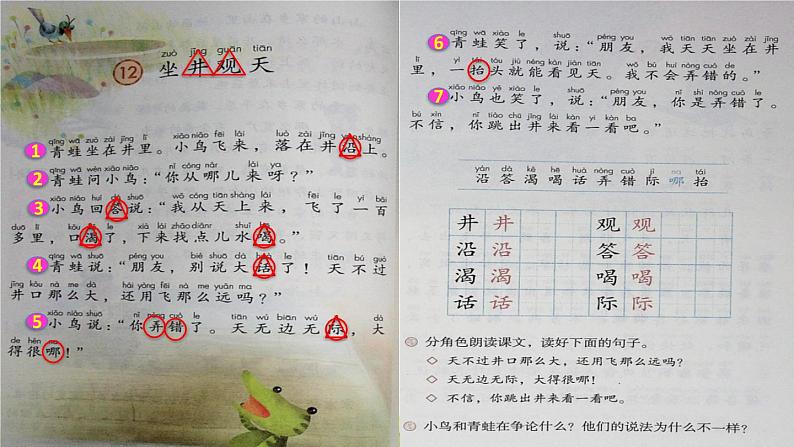 zuò jǐng guān tiān
12 坐井观天
qīng wā zuò zài jǐng lǐ xiǎo niǎo fēi lái luò zài jǐng yán shàng
1 青蛙坐在井里。小鸟飞来，落在井沿上。
qīng wā wèn xiǎo niǎo nǐ cóng nǎr lái ya
2 青蛙问小鸟：“你从哪儿来呀？”
xiǎo niǎo huí dá shuō wǒ cóng tiān shàng lái fēi le yì bǎi
3 小鸟回答说：“我从天上来，飞了一百
duō lǐ kǒu kě le xià lái zhǎo diǎnr shuǐ hē
多里，口渴了，下来找点儿水喝。”
qīng wā shuō péng you bié shuō dà huà le tiān bú guò
4 青蛙说：“朋友，别说大话了！天不过
jǐng kǒu nà me dà hái yòng fēi nà me yuǎn ma
井口那么大，还用飞那么远吗？”
xiǎo niǎo shuō nǐ nòng cuò le tiān wú biān wú jì dà
5 小鸟说：“你弄错了。天无边无际，大
de hěn na
得很哪！”
qīng wā xiào le shuō péng you wǒ tiān tiān zuò zài jǐng
6 青蛙笑了，说：“朋友，我天天坐在井
lǐ yì tái tóu jiù néng kàn jiàn tiān wǒ bú huì nòng cuò de
里，一抬头就能看见天。我不会弄错的。”
xiǎo niǎo yě xiào le shuō péng you nǐ shì nòng cuò le
7 小鸟也笑了，说：“朋友，你是弄错了。
bú xìn nǐ tiào chū jǐng lái kàn yí kàn ba
不信，你跳出井来看一看吧。”
yán dá kě hē huà nòng cuò jì na tái
沿答渴喝话弄错际哪抬
井 井 观 观
沿 沿 答 答
渴 渴 喝 喝
话 话 际 际
分角色朗读课文，读好下面的句子。
◇ 天不过井口那么大，还用飞那么远吗？
◇ 天无边无际，大得很哪！
◇ 不信，你跳出井来看一看吧。
小鸟和青蛙在争论什么？他们的说法为什么不一样？